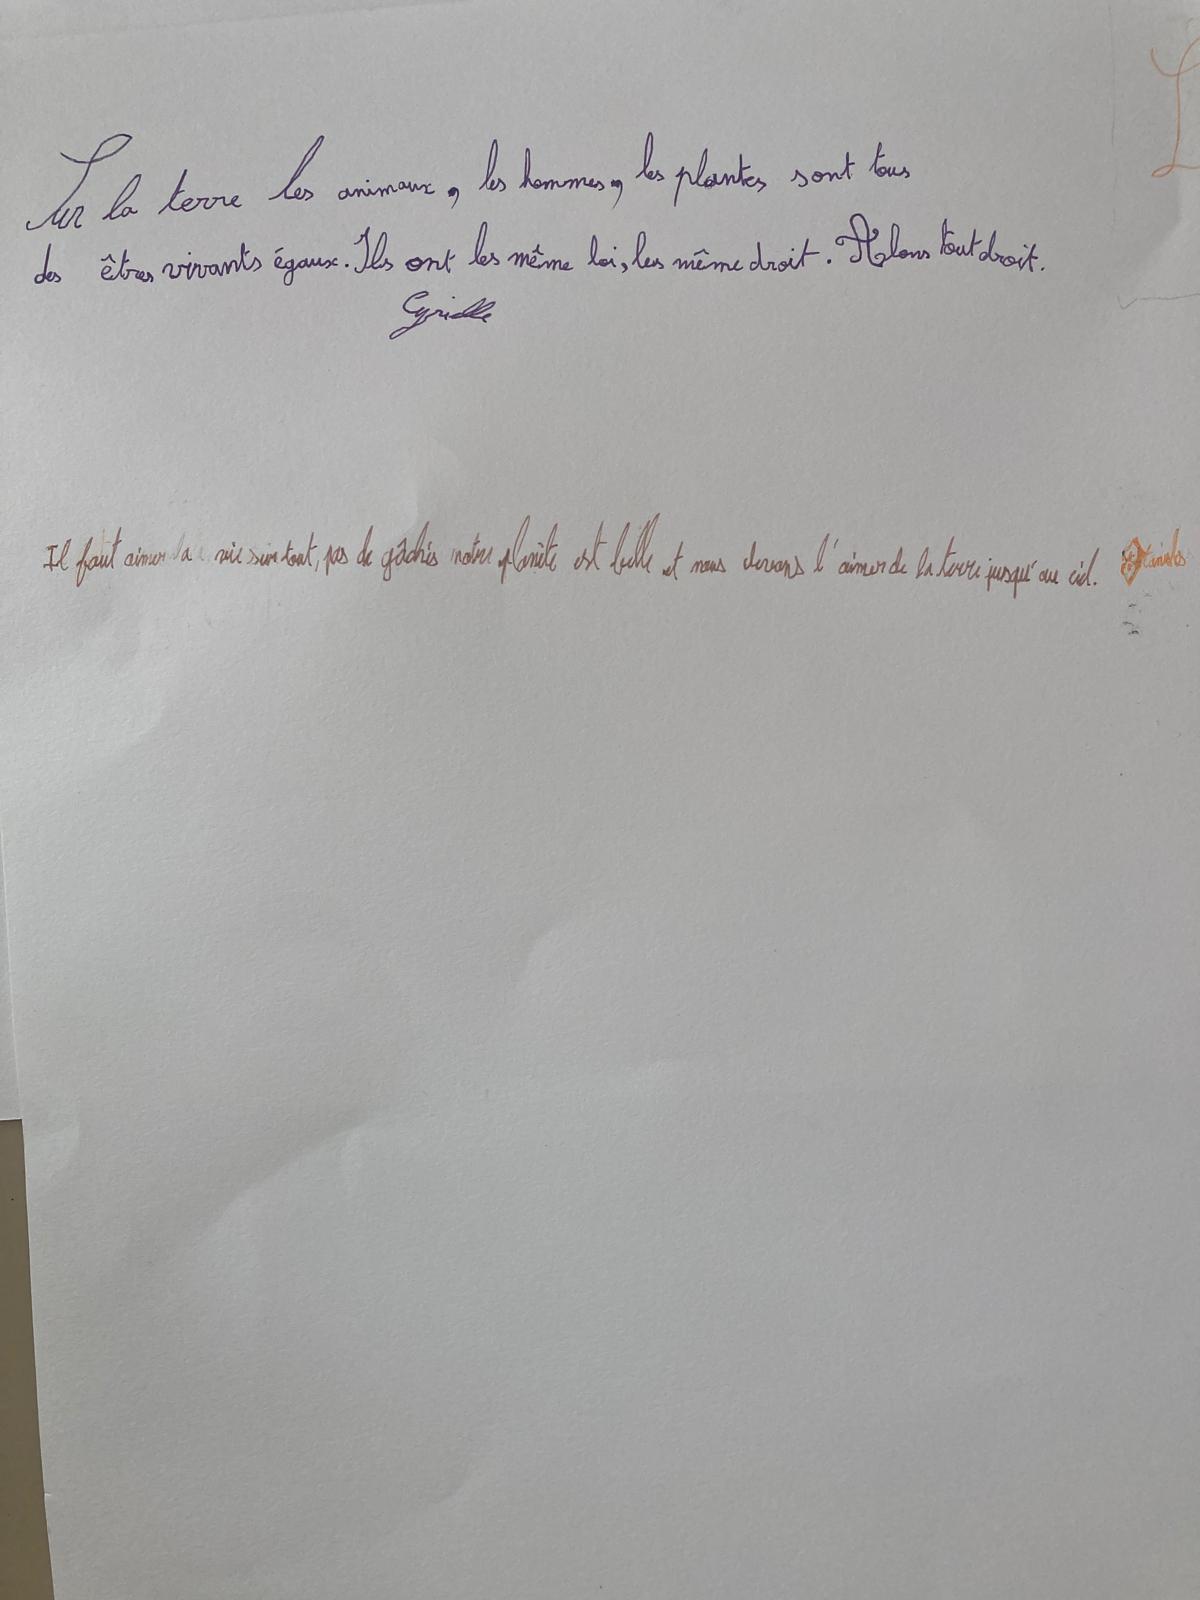 Sur la terre les animaux, les hommes, les plantes sont tous
des êtres vivants égaux. Ils ont les même loi, les même droit. Alons tout droit.
Cyrielle
Il faut aimer la vie surtout, pas de gâchis notre planète est belle et nous devons l'aimer de la terre jusqu'au ciel.